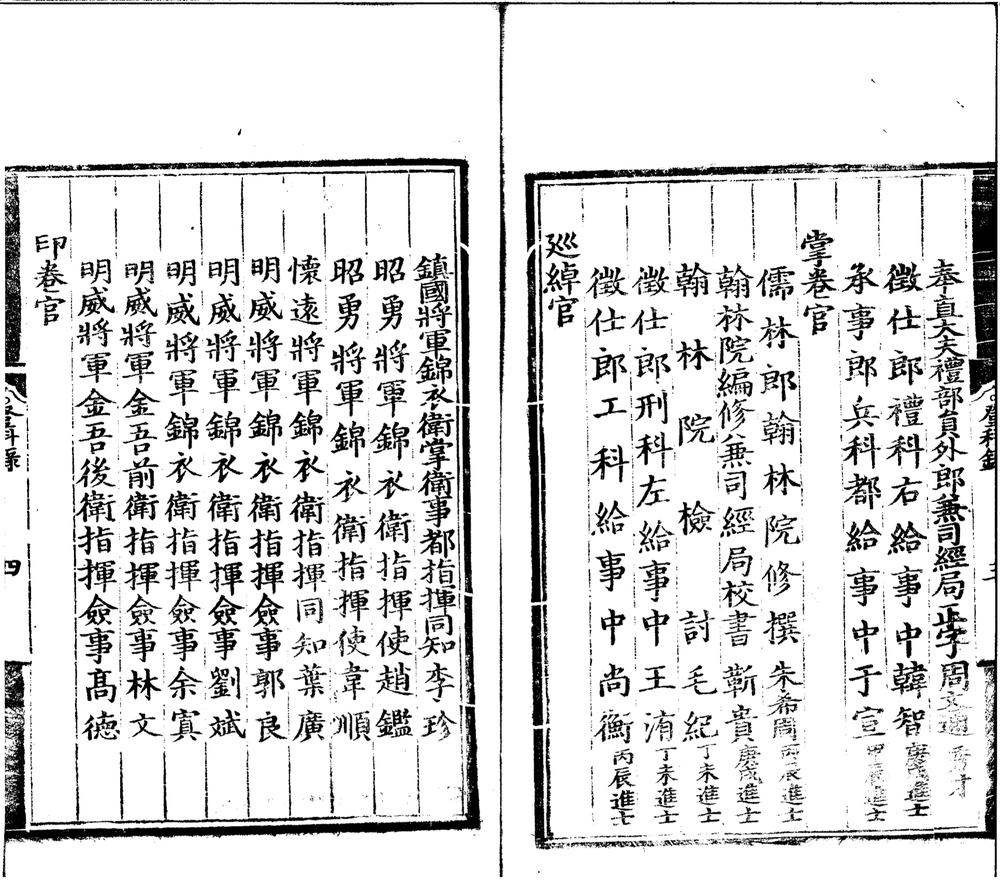 奉直大夫禮部員外郎兼司經局正字周文通秀才
徵仕郎禮科右給事中韓智庚戌進士
承事郎兵科都給事中于宣甲辰進士
掌卷官
儒林郎翰林院修撰朱希周丙辰進士
翰林院編修兼司經局校書靳貴庚戌進士
翰林院檢討毛紀丁未進士
徵仕郎刑科左給事中王洧丁未進士
徵仕郎工科給事中尚衡丙辰進士
廵綽官
登科錄
三
鎮國將軍錦衣衛掌衛事都指揮同知李珍
昭勇將軍錦衣衛指揮使趙鑑
昭勇將軍錦衣衛指揮使韋順
懷遠將軍錦衣衛指揮同知葉廣
明威將軍錦衣衛指揮僉事郭良
明威將軍錦衣衛指揮僉事劉斌
明威將軍錦衣衛指揮僉事余寘
明威將軍金吾前衛指揮僉事林文
明威將軍金吾後衛指揮僉事髙德
印卷官
登科錄
四